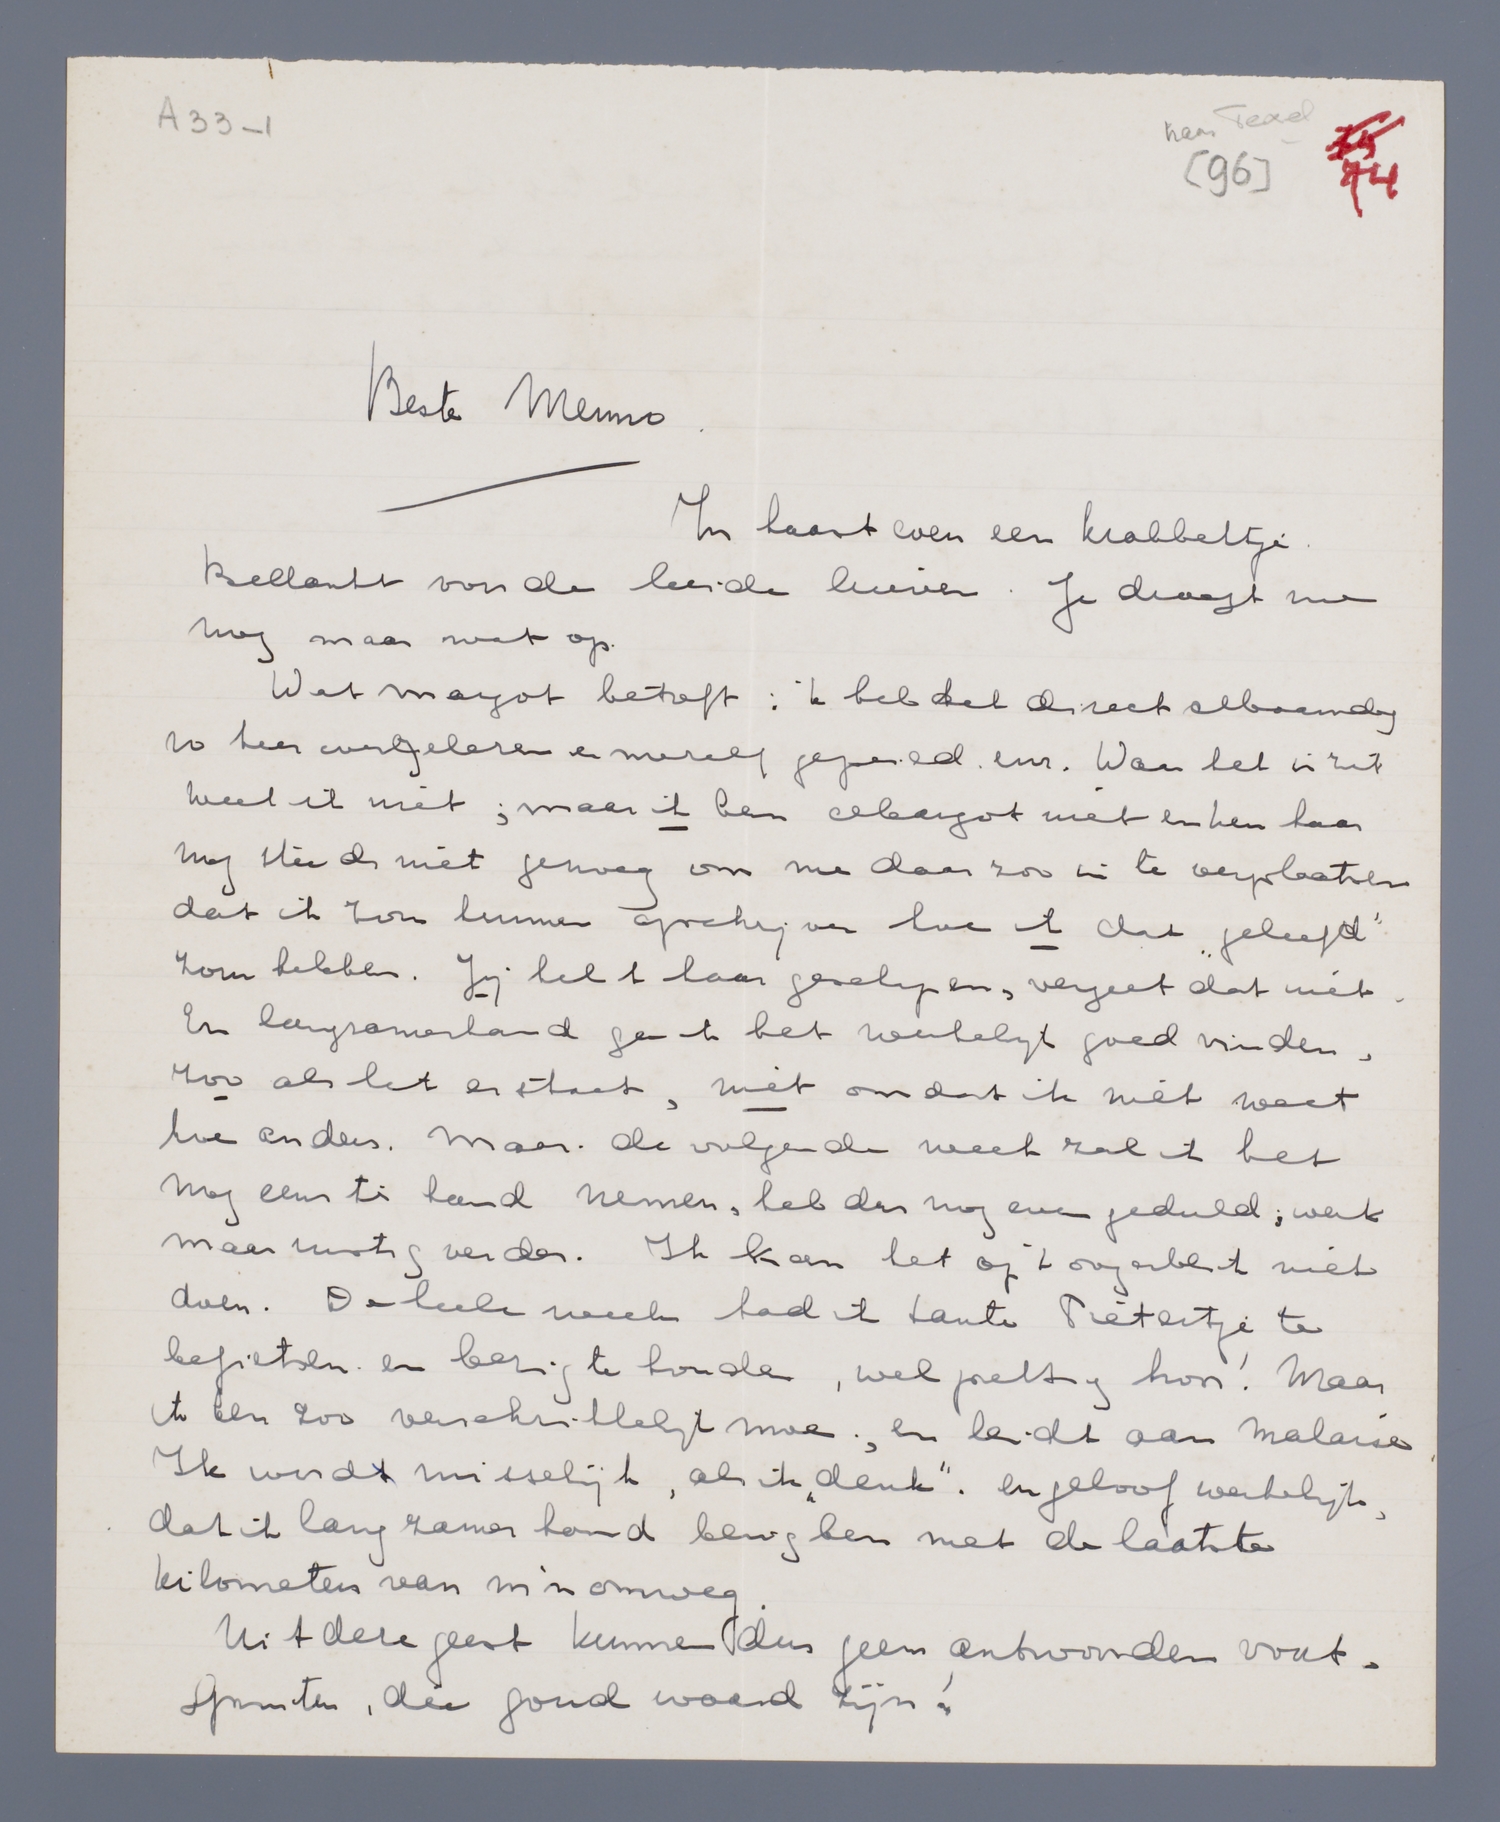 A33-1
naar Texel
[96]
74
Beste Menno.
In haast even een krabbeltje.
Bedankt voor de beide brieven. Je draagt me
nog maar wat op.
Wat Margot betreft: ik heb het direct
weet ik niet; maar ik ben Margot niet en ken haar
nog steeds niet genoeg om me daar zoo in te verplaatsen
dat ik zou kunnen opschrijven hoe ik dat „geleefd"
zou hebben. Jij hebt haar geschapen, vergeet dat niet.
En langzamerhand ga ik het werkelijk goed vinden,
zoo als het er staat, niet omdat ik niet weet
hoe anders. Maar de volgende week zal ik het
nog eens ter hand nemen, heb dus nog even geduld; werk
maar rustig verder. Ik kan het op 't oogenblik niet
doen. De heele week had ik tante Pietertje te
befietsen en bezig te houden, wel prettig hoor! Maar
ik ben zoo verschrikkelijk moe, en leidt aan malaise.
Ik wordt misselijk, als ik „denk". en geloof werkelijk,
dat ik langzamerhand bezig ben met de laatste
kilometers van m'n omweg.
Uit deze geest kunnen dus geen antwoorden voort-
spruiten, die goud waard zijn!